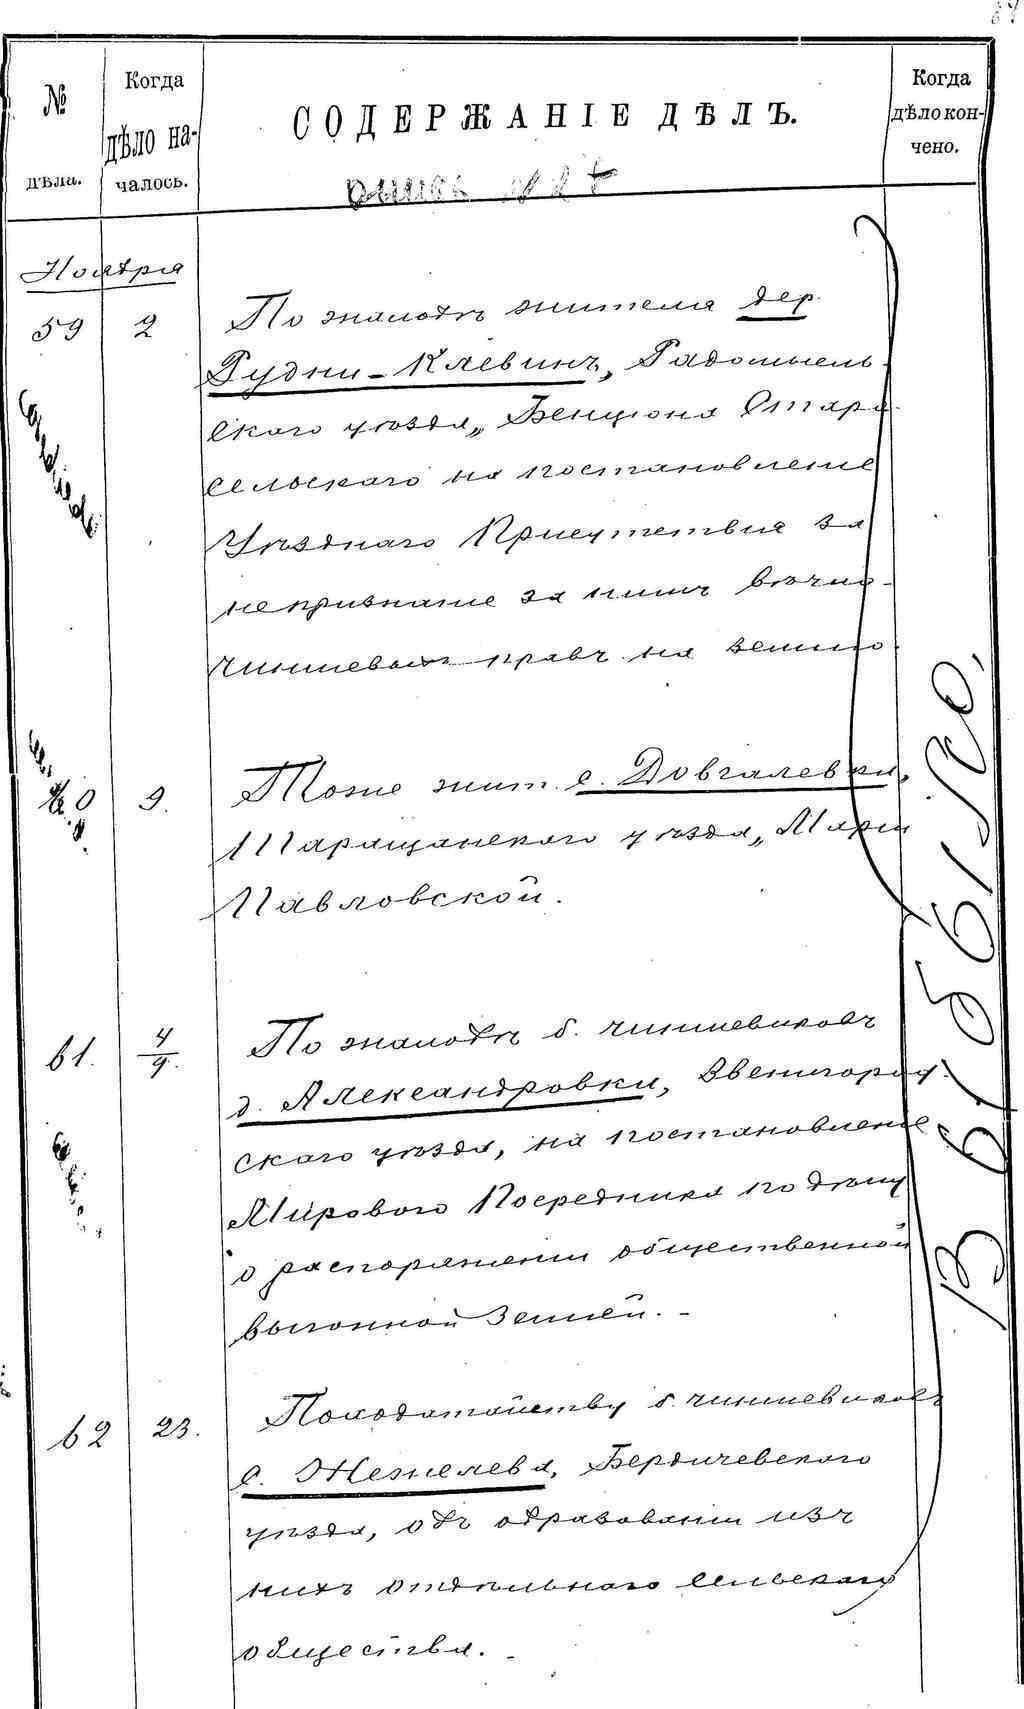 № дѣла.
Когда дѣло началось.
СОДЕРЖАНІЕ ДѢЛЪ.
Когда дѣло кончено.
опись № 2
Ноября
59 2 По жалобѣ жителя дер.
Рудни-Клевинъ, Радомысль-
скаго уѣзда, Бенціона Старо-
сельскаго на постановленіе
Уѣзднаго Присутствія за
непризнаніе за нимъ вѣчно-
чиншевыхъ правъ на землю.
60 9. Тоже жит. с. Довгалевки,
Таращанскаго уѣзда, Маріи
Павловской.
61. 4/9. По жалобѣ б. чиншевиковъ
д. Александровки, Звенигород-
скаго уѣзда, на постановленіе
Мирового Посредника по дѣлу
о распоряженіи общественной
выгонной землей.-
62 23. По ходатайству б. чиншевиковъ
с. Жежелева, Бердичевскаго
уѣзда, объ образованіи изъ
нихъ отдѣльнаго сельскаго
общества.-
Выбыло,